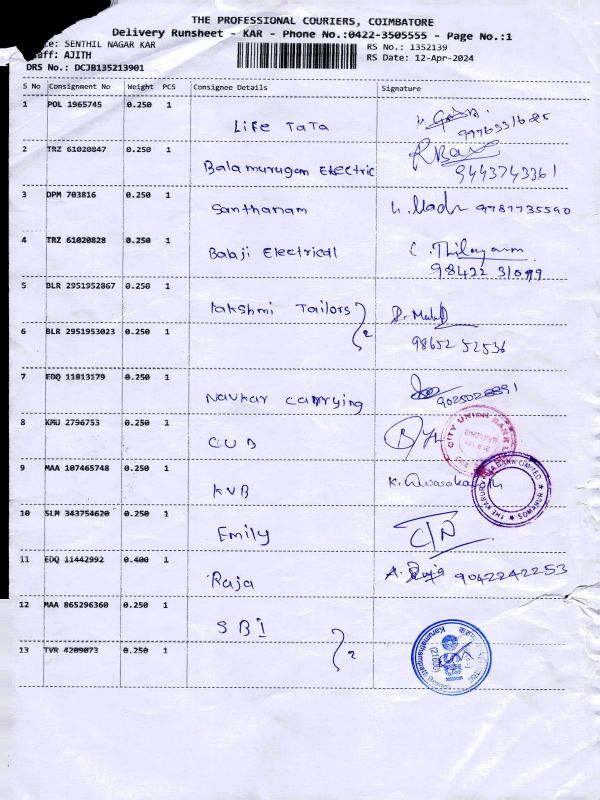 THE PROFESSIONAL COURIERS, COIMBATORE
Delivery Runsheet - KAR - Phone No.:0422-3505555 - Page No.:1
SENTHIL NAGAR KAR
RS No.: 1352139
AJITH
RS Date: 12-Apr-2024
DRS No.: DCJB135213901
S No Consignment No Weight PCS Consignee Details Signature
1 POL 1965745 0.250 1
Life TaTa
2 TRZ 61020847 0.250 1
Balamurugan Electric 9443743361
3 DPM 703816 0.250 1
Santhanam 9787735590
4 TRZ 61020828 0.250 1
Balaji Electrical
98422 31099
5 BLR 2951952867 0.250 1
Lakshmi Tailors 2
6 BLR 2951953023 0.250 1
98652 52536
7 EDQ 11813179 0.250 1
Navkar carrying
8 KMU 2796753 0.250 1
CUB
CITY UNION BANK
9 MAA 107465748 0.250 1
KVB
10 SLM 343754620 0.250 1
Emily
11 EDQ 11442992 0.400 1
Raja A. Raja 9042242253
12 MAA 865296360 0.250 1
SBI 2
13 TVR 4209073 0.250 1